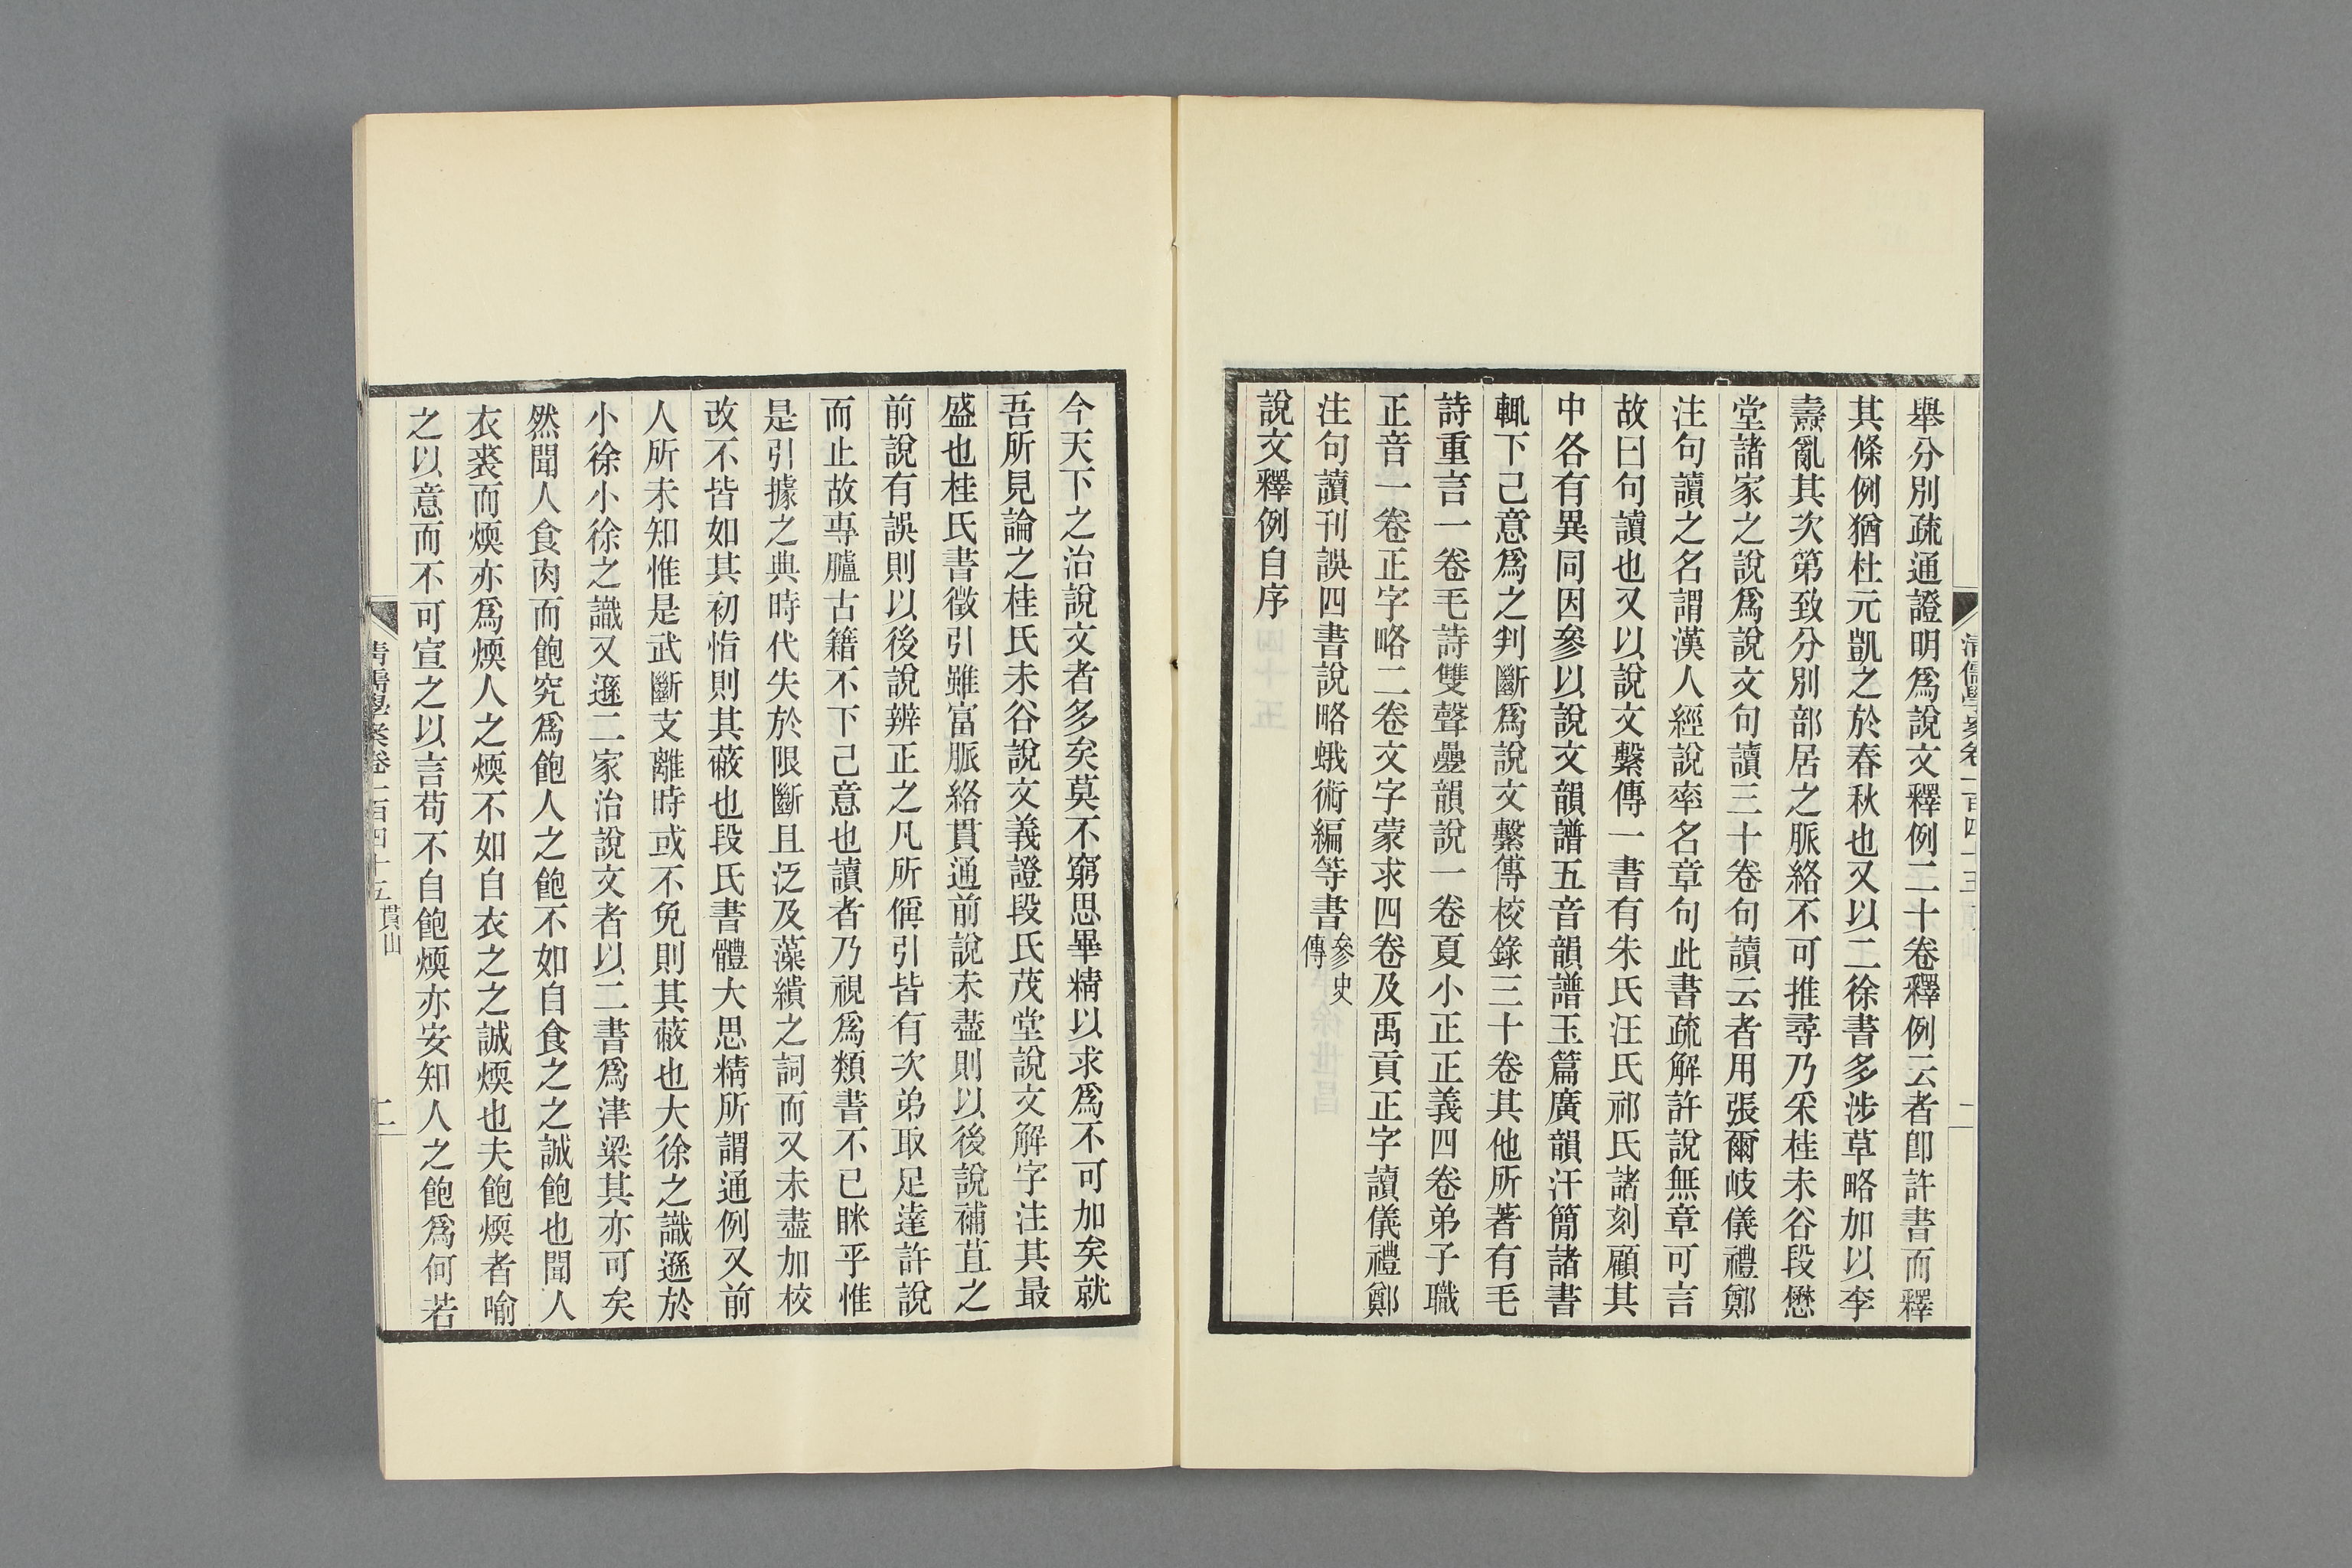 舉分別疏通證明爲說文釋例二十卷釋例云者卽許書而釋
其條例猶杜元凱之於春秋也又以二徐書多涉草略加以李
燾亂其次第致分別部居之脈絡不可推尋乃采桂未谷段懋
堂諸家之說爲說文句讀三十卷句讀云者用張爾岐儀禮鄭
注句讀之名謂漢人經說率名章句此書疏解許說無章可言
故曰句讀也又以說文繫傳一書有朱氏汪氏祁氏諸刻顧其
中各有異同因參以說文韻譜五音韻譜玉篇廣韻汗簡諸書
輒下己意爲之判斷爲說文繫傳校錄三十卷其他所著有毛
詩重言一卷毛詩雙聲疊韻說一卷夏小正正義四卷弟子職
正音一卷正字略二卷文字蒙求四卷及禹貢正字讀儀禮鄭
注句讀刊誤四書說略蛾術編等書參史傳
說文釋例自序
今天下之治說文者多矣莫不窮思畢精以求爲不可加矣就
吾所見論之桂氏未谷說文義證段氏茂堂說文解字注其最
盛也桂氏書徵引雖富脈絡貫通前說未盡則以後說補苴之
前說有誤則以後說辨正之凡所偁引皆有次弟取足達許說
而止故專臚古籍不下己意也讀者乃視爲類書不已眯乎惟
是引據之典時代失於限斷且泛及藻繢之詞而又未盡加校
改不皆如其初恉則其蔽也段氏書體大思精所謂通例又前
人所未知惟是武斷支離時或不免則其蔽也大徐之識遜於
小徐小徐之識又遜二家治說文者以二書爲津梁其亦可矣
然聞人食肉而飽究爲飽人之飽不如自食之之誠飽也聞人
衣裘而煗亦爲煗人之煗不如自衣之之誠煗也夫飽煗者喻
之以意而不可宣之以言苟不自飽煗亦安知人之飽爲何若
清儒學案卷一百四十五 貫山
二